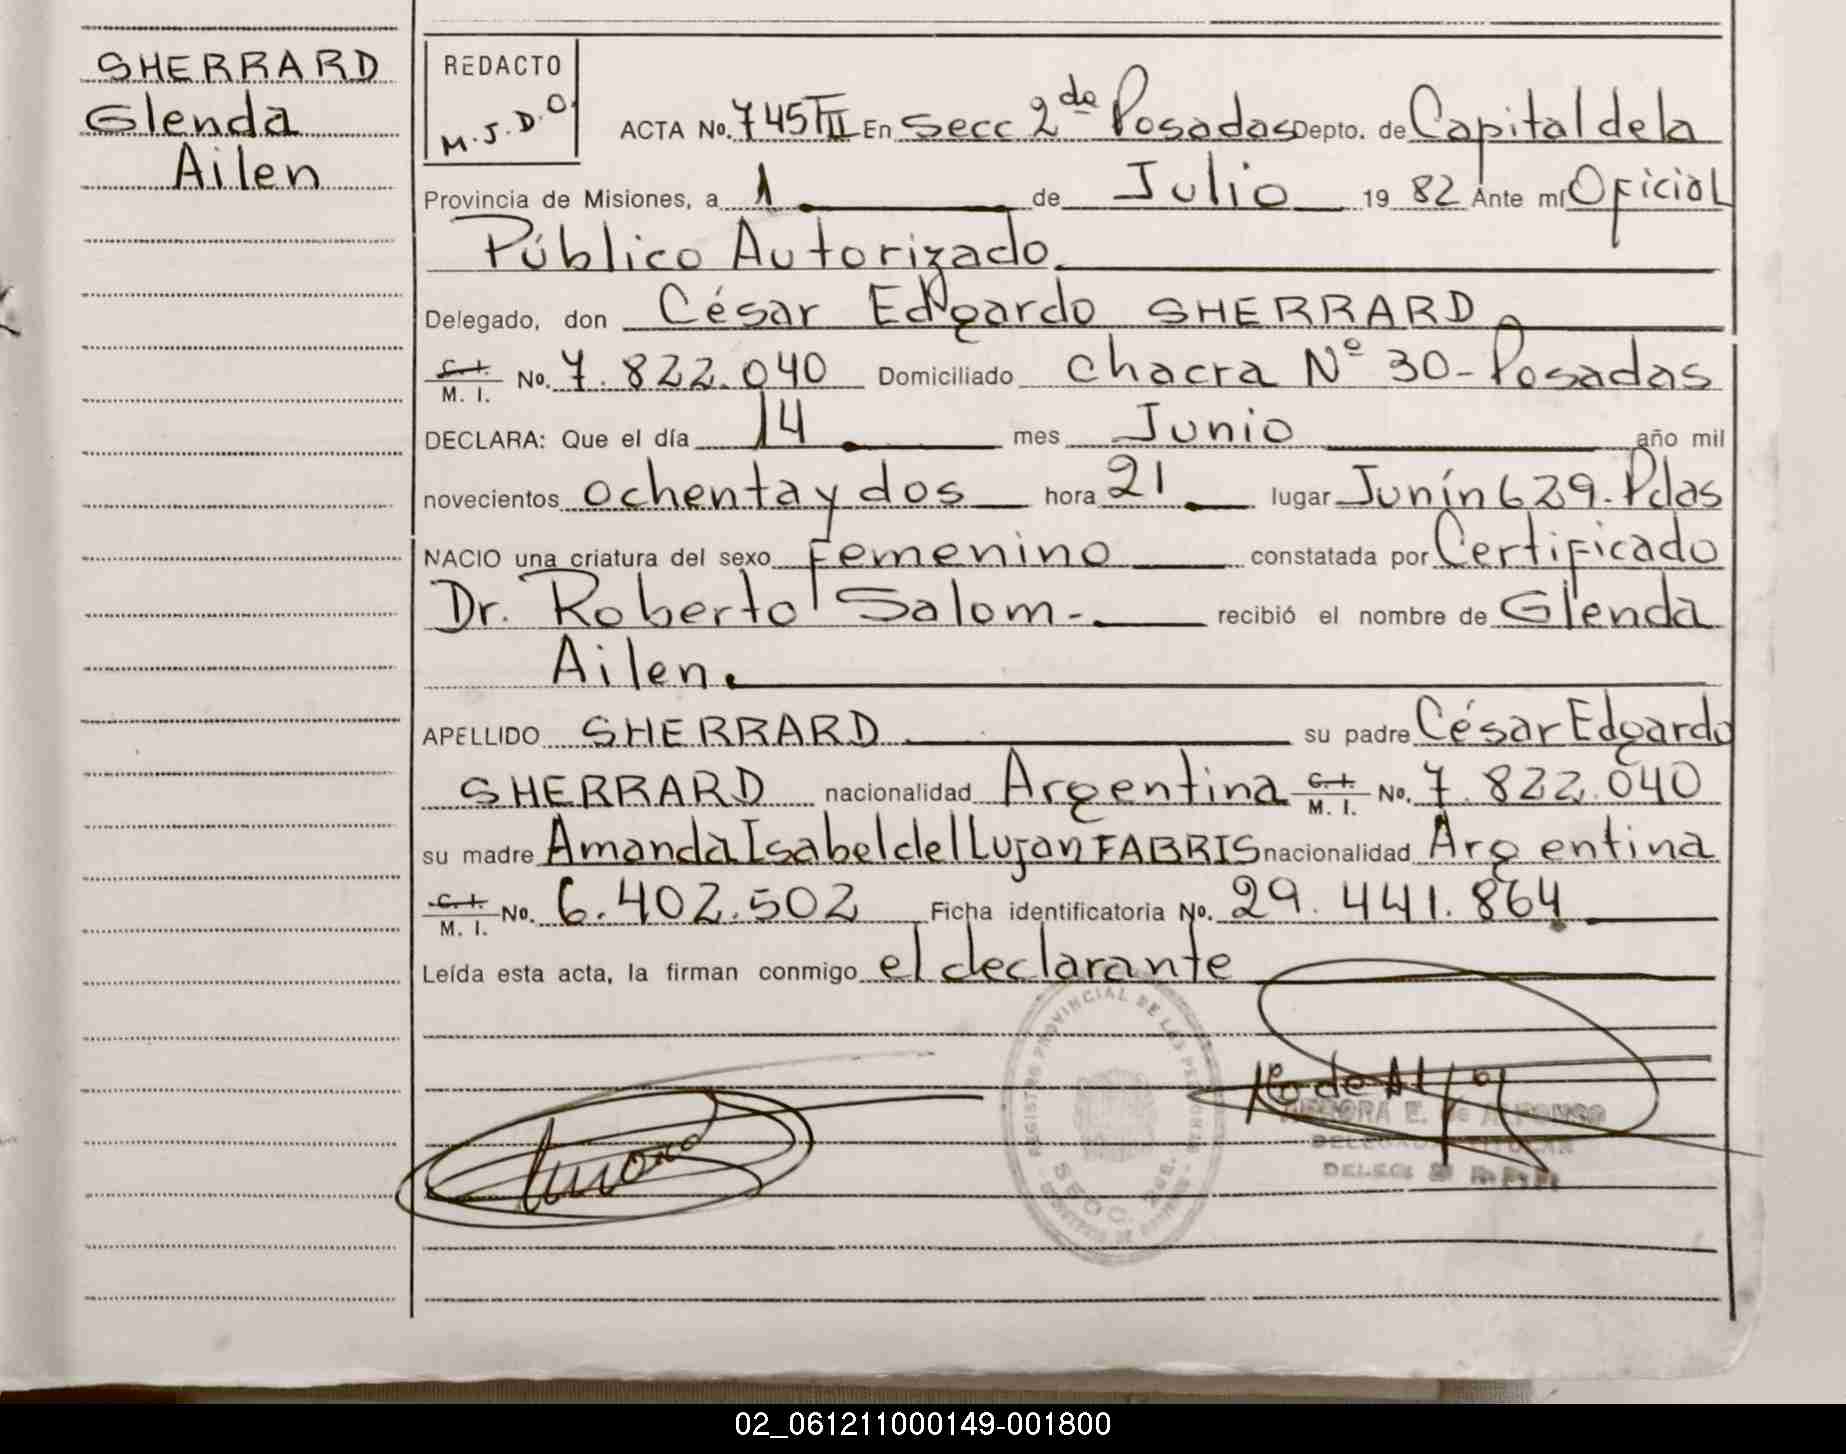 SHERRARD
Glenda
Ailen
REDACTO
M.J.D.O.
ACTA No. 745 TIII En Secc 2da Posadas Depto. de Capital de la
Provincia de Misiones, a 1 de Julio 19 82 Ante mí Oficial
Público Autorizado
Delegado, don César Edgardo SHERRARD
C. I. M. I. No. 7.822.040 Domiciliado chacra Nº 30 - Posadas
DECLARA: Que el día 14 mes Junio año mil
novecientos ochenta y dos hora 21 lugar Junín 629. Pdas
NACIO una criatura del sexo Femenino constatada por Certificado
Dr. Roberto Salom - recibió el nombre de Glenda
Ailen.
APELLIDO SHERRARD su padre César Edgardo
SHERRARD nacionalidad Argentina C. I. M. I. No. 7.822.040
su madre Amanda Isabel del Lujan FABRIS nacionalidad Argentina
C. I. M. I. No. 6.402.502 Ficha identificatoria No. 29.441.864
Leída esta acta, la firman conmigo el declarante
REGISTRO PROVINCIAL DE LAS PERSONAS
SECC. 2da.
E. de ALFONSO
DELEGADA TITULAR
02_061211000149-001800